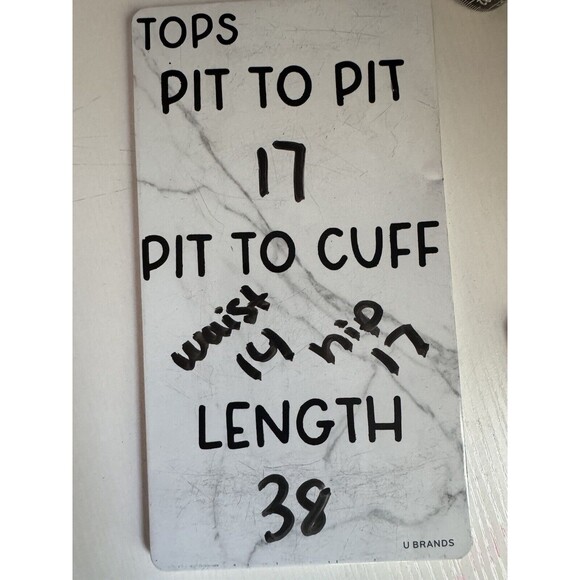 TOPS
PIT TO PIT
17
PIT TO CUFF
waist hip
14 17
LENGTH
38
U BRANDS